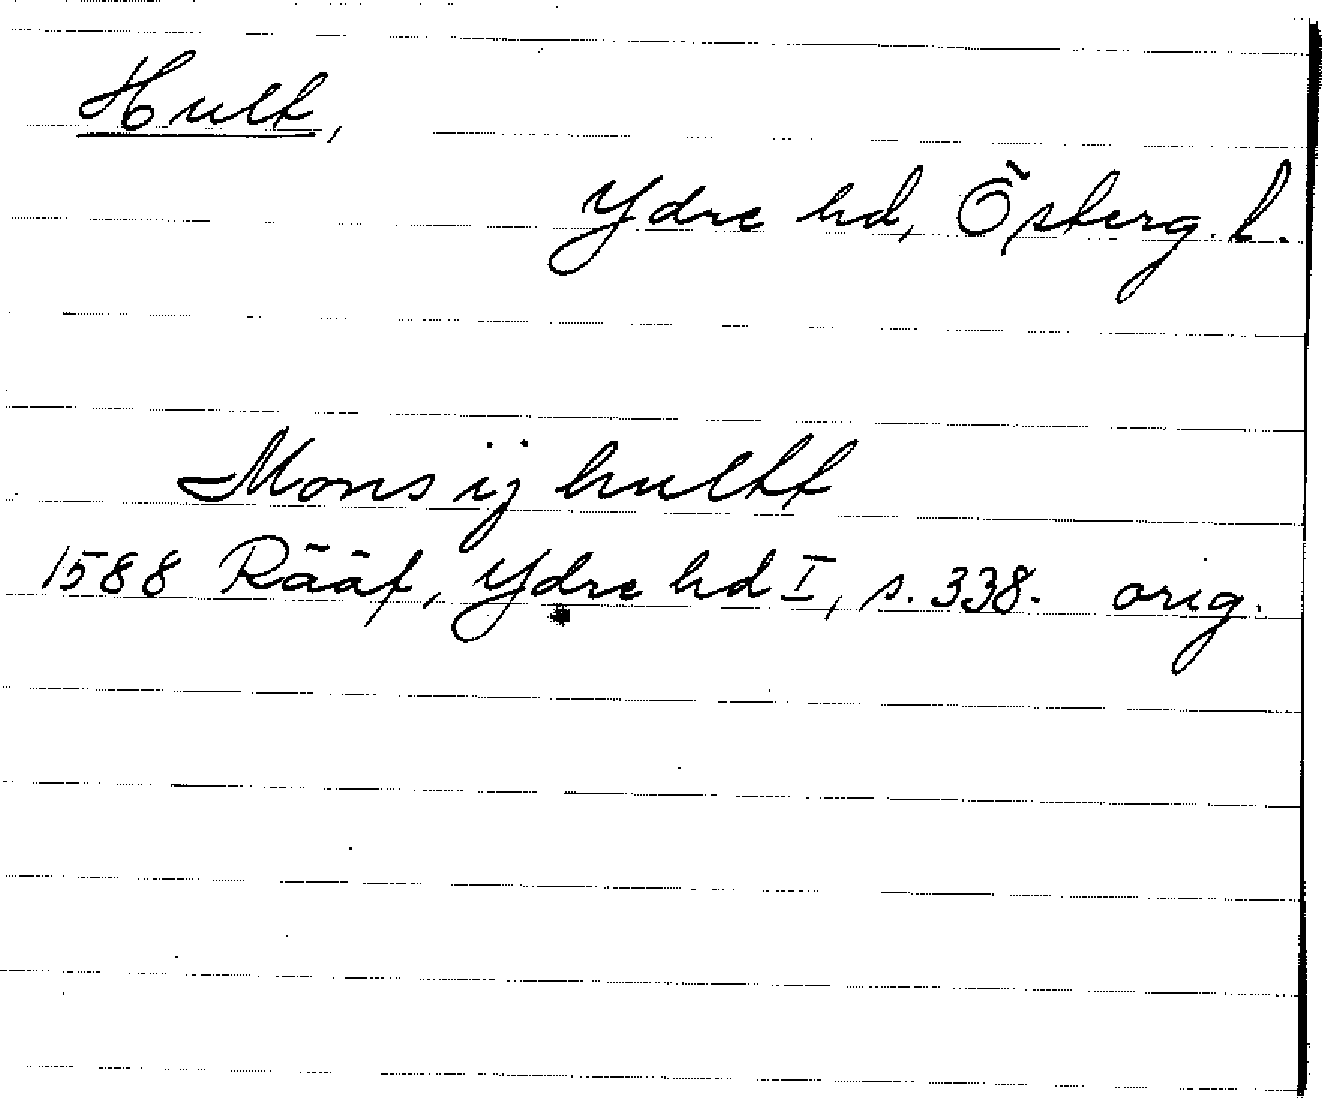 Hult,
Ydre hd, Österg. l.
Mons ij hultt
1588 Rääf, Ydre hd I, s. 338. orig.